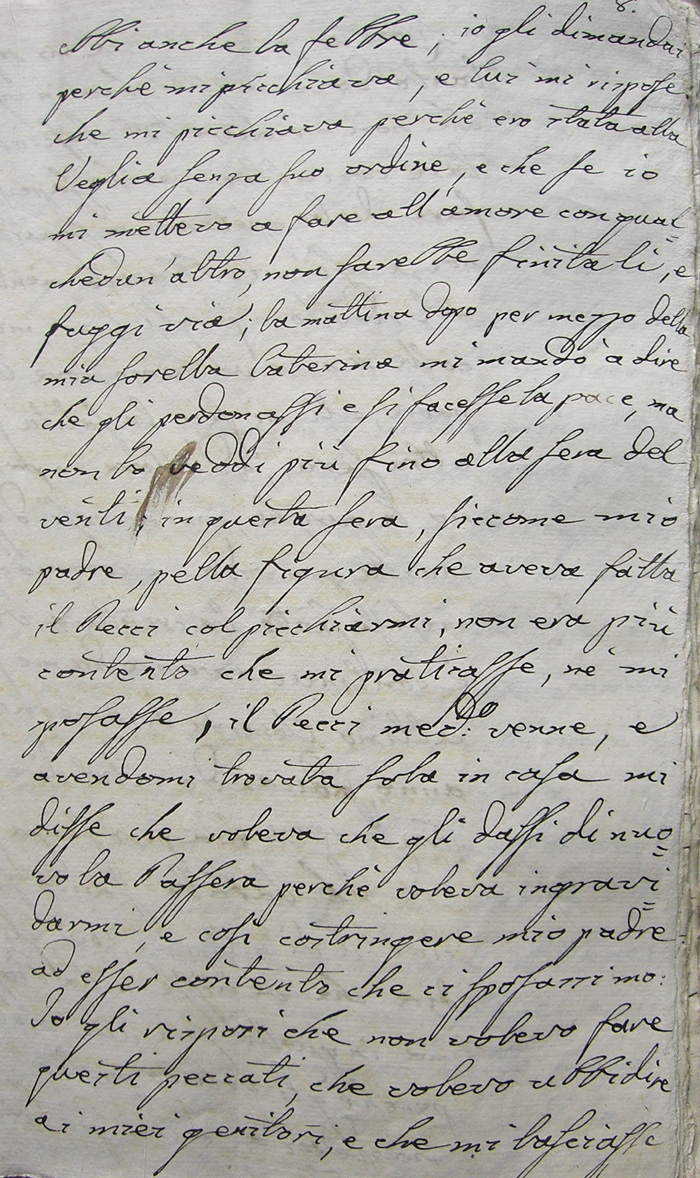 8.
ebbi anche la febbre; io gli dimandai
perchè mi picchiava, e lui mi rispose
che mi picchiava perchè ero stata alla
Veglia senza suo ordine, e che se io
mi mettevo a fare all'amore con qual=
chedun'altro, non sarebbe finita lì, e
fuggì via; la mattina dopo per mezzo della
mia sorella Caterina mi mandò a dire
che gli perdonassi e si facesse la pace, ma
non lo veddi più fino alla sera del
venti; in questa sera, siccome mio
padre, pella figura che aveva fatta
il Pecci col picchiarmi, non era più
contento che mi praticasse, nè mi
sposasse, il Pecci med:do venne, e
avendomi trovata sola in casa mi
disse che voleva che gli dassi di nuo=
vo la Passera perchè voleva ingravi=
darmi, e così costringere mio padre
ad esser contento che ci sposassimo:
Io gli risposi che non volevo fare
questi peccati, che volevo ubbidire
ai miei genitori, e che mi lasciasse